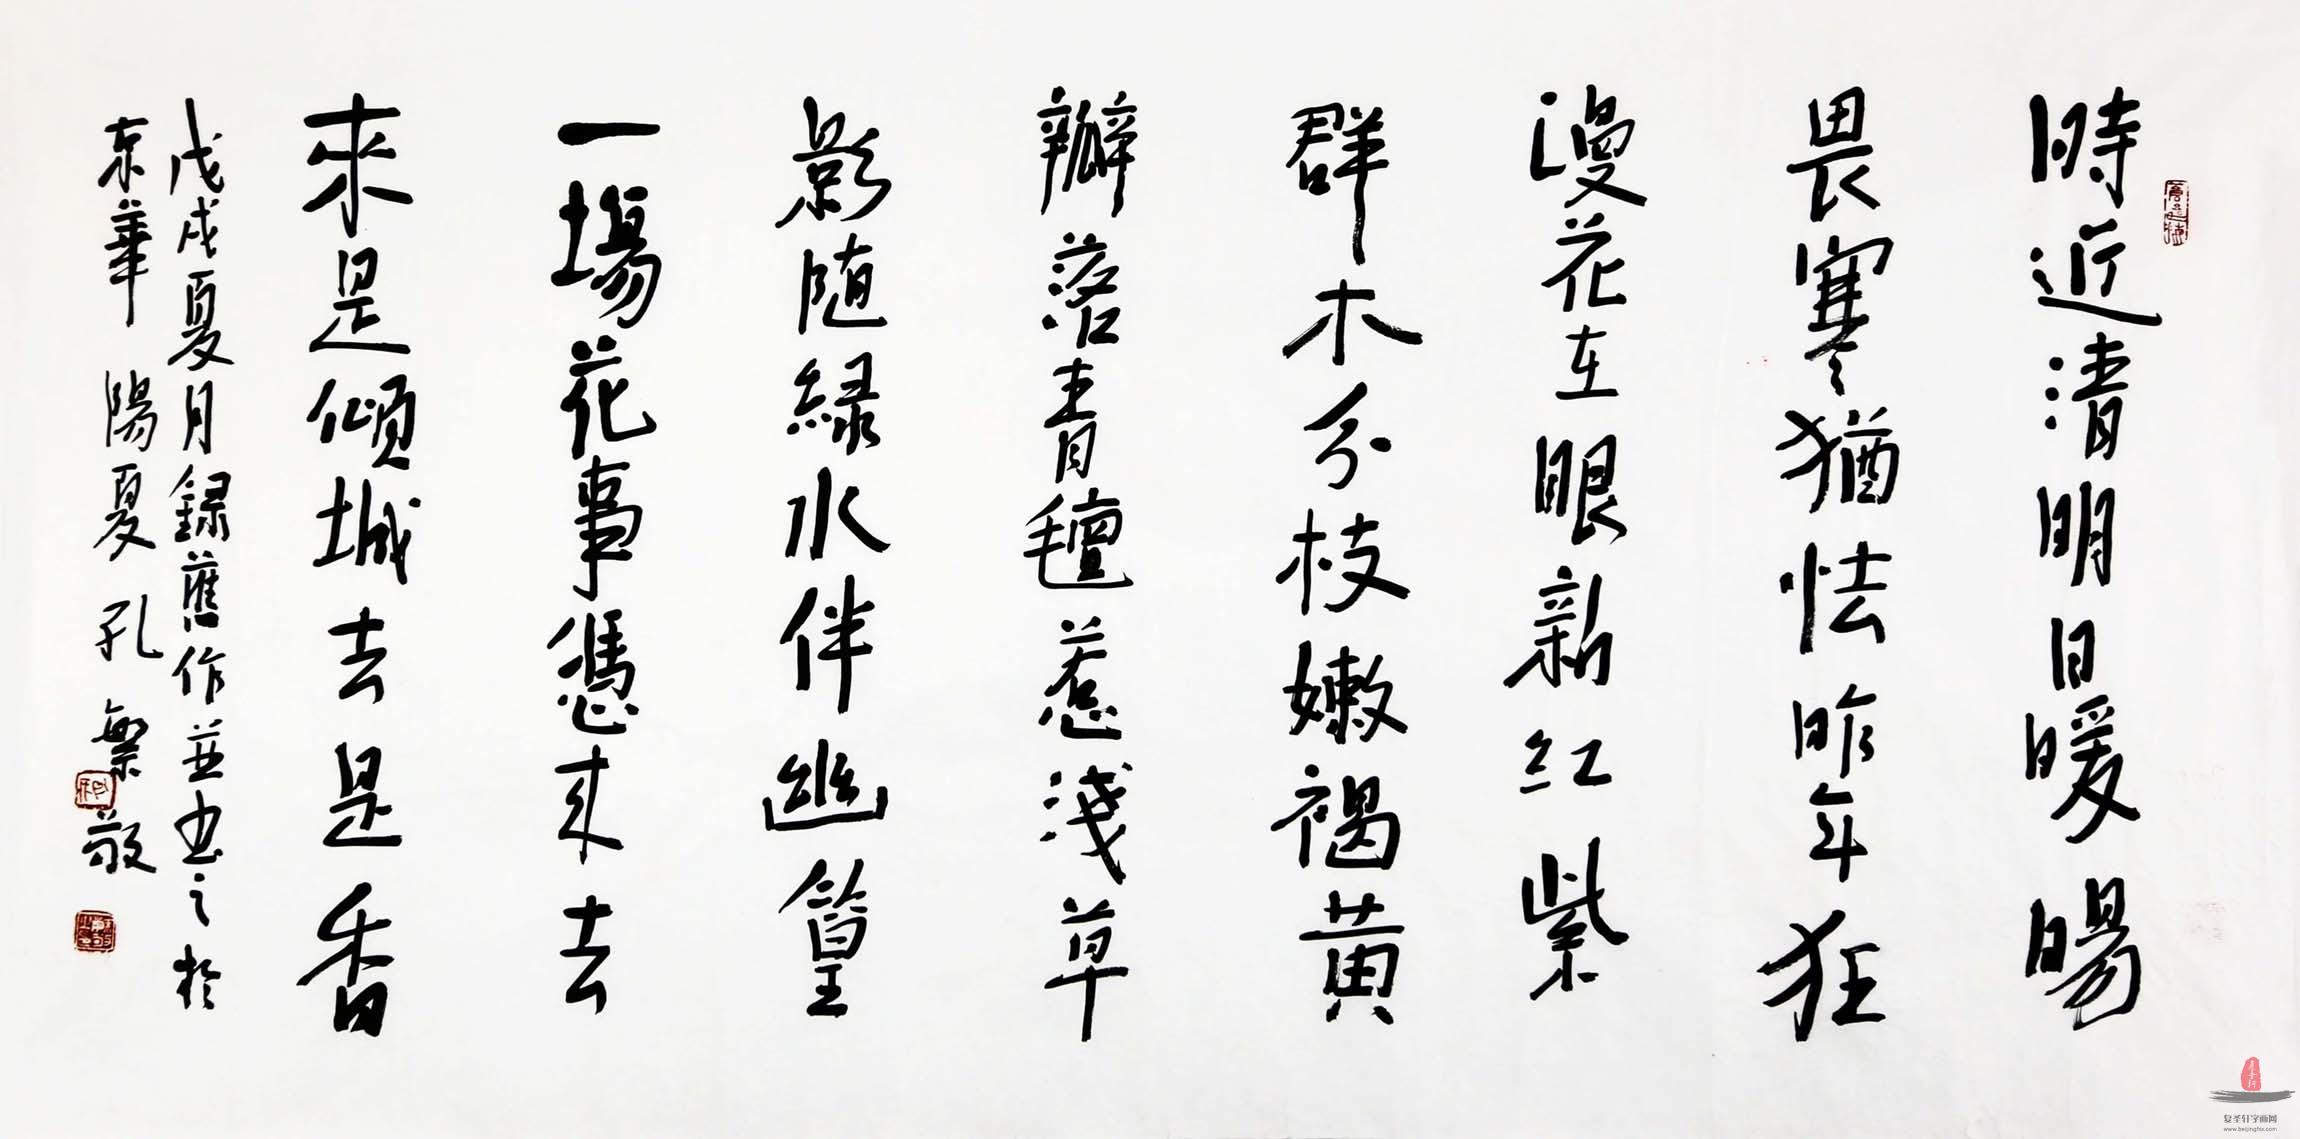 時近清明日暖暘
畏寒猶怯昨年狂
漫花在眼新红紫
群木分枝嫩褐黄
瓣落青氈惹淺草
影随緑水伴幽篁
一場花事憑来去
來是傾城去是香
戊戌夏月録舊作並书之於
京華 陽夏孔繁敬
复圣轩字画网
www.beijingfsx.com